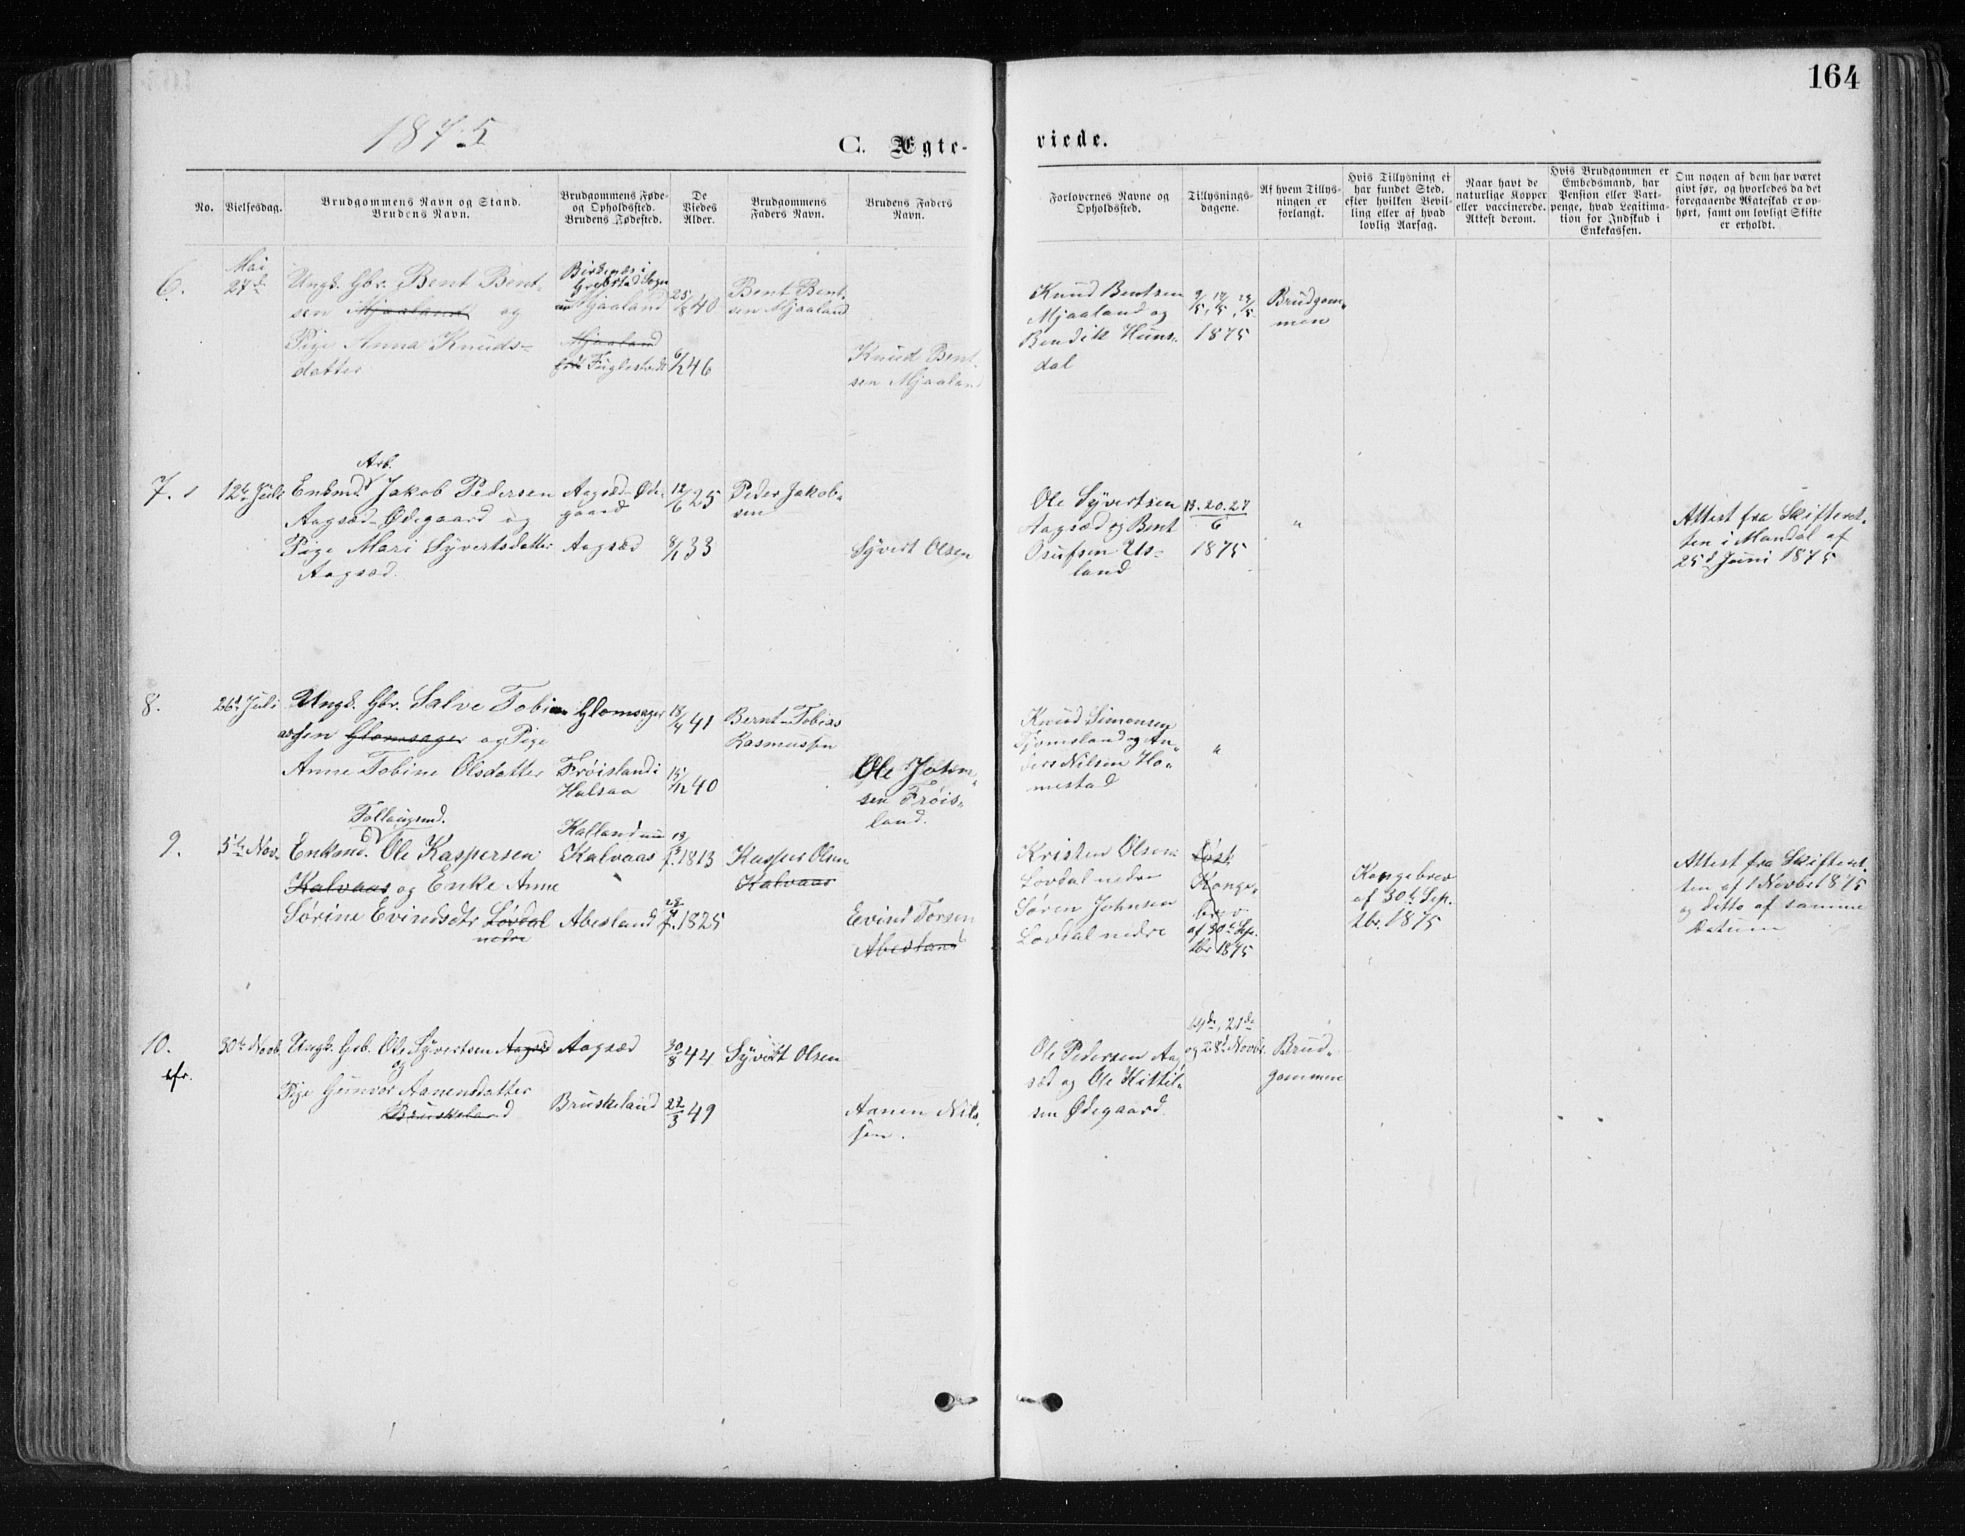 164
1875
C. Ægte-
viede.
No.
Vielsesdag.
Brudgommens Navn og Stand.
Brudens Navn.
Brudgommens Føde-
og Opholdssted.
Brudens Fødested.
De
Viedes
Alder.
Brudgommens
Faders Navn.
Brudens Faders
Navn.
Forlovernes Navne og
Opholdssted.
Tillysnings-
dagene.
Af hvem Tillys-
ningen er
forlangt.
Hvis Tillysning ei
har fundet Sted,
efter hvilken Bevil-
ling eller af hvad
lovlig Aarsag.
Naar havt de
naturlige Kopper
eller vaccinerede.
Attest derom.
Hvis Brudgommen er
Embedsmand, har
Pension eller Vart-
penge, hvad Legitima-
tion for Indskud i
Enkekassen.
Om nogen af dem har været
givt før, og hvorledes da det
foregaaende Mateskab er op-
hørt, samt om lovligt Skifte
er erholdt.
6.
Mai
27de
Ungk. Gbr. Bent Bent-
sen Mjaaland og
Pige Anna Knuds-
datter
Grebstad Sogn
Mjaaland
Mjaaland
Fuglestvedt
25/8 40
6/12 46
Bent Bent-
sen Mjaaland
Knud Bent-
sen Mjaaland
Knud Bentsen
Mjaaland og
Bendik Huns-
dal
1875
Brudgom-
men
7.
12te Juli
Arb.
Enkmd. Jakob Pedersen
Aagsæd-Ødegaard og
Pige Mari Syvertsdatter
Aagsæd.
Aagsæd-Øde-
gaard
Aagsæd
12/6 25
8/1 33
Peder Jakob-
sen
Syvert Olsen
Ole Syvertsen
Aagsæd og Bent
Osufsen Us-
land
13. 20. 27
6
1875
"
Attest fra Skifteret-
ten i Mandal af
25d Juni 1875
8.
26d Juli
Ungk. Gbr. Salve Tobi
assen Glomsager og Pige
Anne Tobine Olsdatter
Glomsager
Frøisland i
Halsaa
18/4 41
15/12 40
Bernt Tobias
Rasmussen
Ole John-
sen Frøis-
land.
Knud Simonsen
Tjomsland og An-
ders Nilsen Ho-
mestad
"
9.
5te Nov.
Follaugsmd.
Enkmd. Ole Kaspersen
Kalvaas og Enke Anne
Sørine Evindsdtr Løvdal
nedre
Kalland nu
Kalvaas
Abesland
f. 1813
f. 1825
Kasper Olsen
Kalvaas
Evind Torsen
Abesland
Kristen Olsen
Lovdal nedre
Søren Johnsen
Lovdal nedre
Konge-
brev
af 30te Sep.
tbr 1875
Kongebrev
af 30te Sep-
tbr. 1875
Attest fra Skifteret-
ten af 1 Novbr 1875
og ditto af samme
Datum
10.
30te Novb.
Ungk. Grb. Ole Syvertsen Aagsæd
og
Pige Gunvor Aanensdatter
Bruskeland
Aagsæd
Bruskeland
30/8 44
22/3 49
Syvert Olsen
Aanen Nils-
sen.
Ole Pedersen Aag-
sæd og Ole Kittil-
sen Ødegaard
14de, 21de
og 28d Novbr.
Brud-
gommen